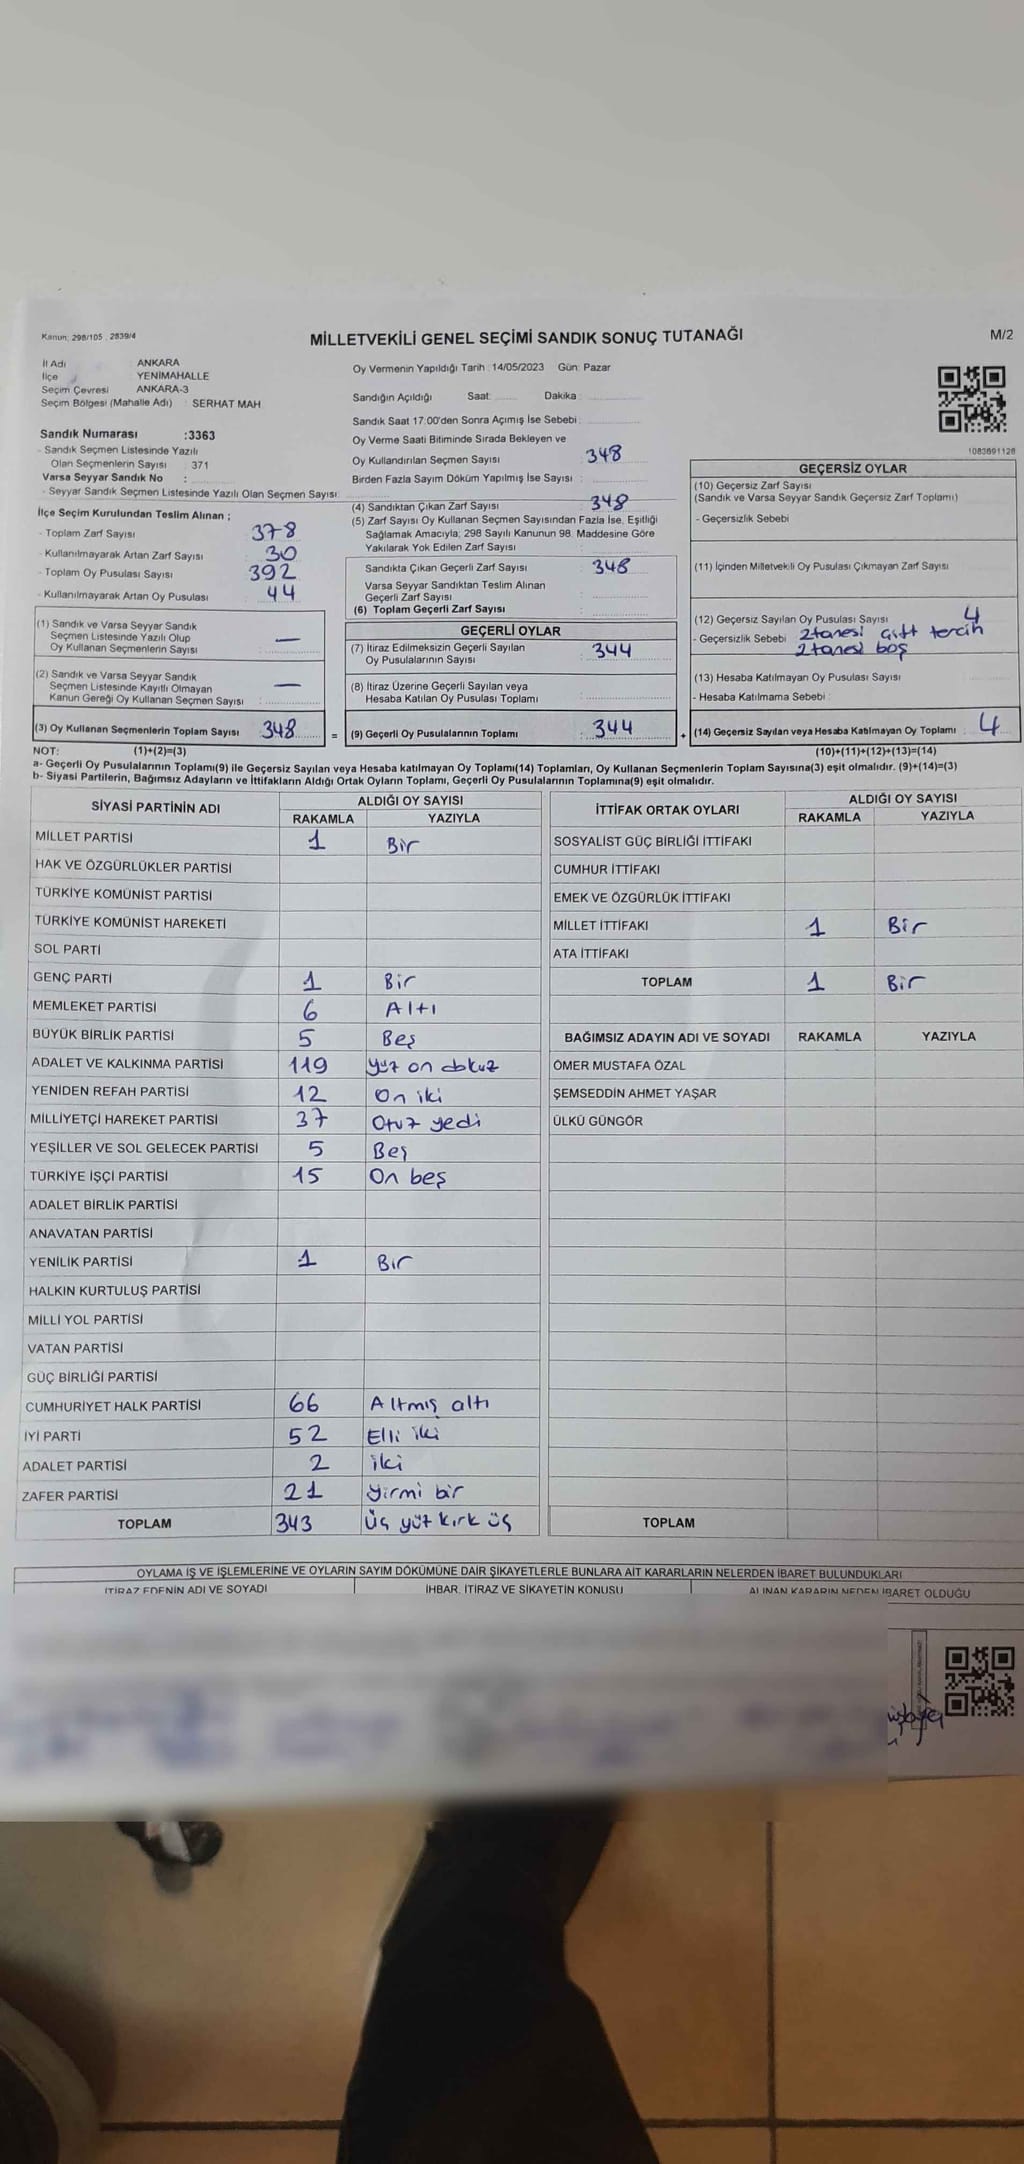 Kanun: 298/105 , 2839/4
MİLLETVEKİLİ GENEL SEÇİMİ SANDIK SONUÇ TUTANAĞI
M/2
İl Adı ANKARA
İlçe YENİMAHALLE
Seçim Çevresi ANKARA-3
Seçim Bölgesi (Mahalle Adı) : SERHAT MAH
Sandık Numarası :3363
- Sandık Seçmen Listesinde Yazılı
Olan Seçmenlerin Sayısı : 371
Varsa Seyyar Sandık No :
- Seyyar Sandık Seçmen Listesinde Yazılı Olan Seçmen Sayısı:
İlçe Seçim Kurulundan Teslim Alınan ;
- Toplam Zarf Sayısı 378
- Kullanılmayarak Artan Zarf Sayısı 30
- Toplam Oy Pusulası Sayısı 392
- Kullanılmayarak Artan Oy Pusulası 44
(1) Sandık ve Varsa Seyyar Sandık
Seçmen Listesinde Yazılı Olup
Oy Kullanan Seçmenlerin Sayısı : —
(2) Sandık ve Varsa Seyyar Sandık
Seçmen Listesinde Kayıtlı Olmayan
Kanun Gereği Oy Kullanan Seçmen Sayısı : —
(3) Oy Kullanan Seçmenlerin Toplam Sayısı : 348 =
Oy Vermenin Yapıldığı Tarih : 14/05/2023 Gün: Pazar
Sandığın Açıldığı Saat: Dakika :
Sandık Saat 17:00'den Sonra Açımış İse Sebebi :
Oy Verme Saati Bitiminde Sırada Bekleyen ve
Oy Kullandırılan Seçmen Sayısı : 348
Birden Fazla Sayım Döküm Yapılmış İse Sayısı :
(4) Sandıktan Çıkan Zarf Sayısı : 348
(5) Zarf Sayısı Oy Kullanan Seçmen Sayısından Fazla İse, Eşitliği
Sağlamak Amacıyla; 298 Sayılı Kanunun 98. Maddesine Göre
Yakılarak Yok Edilen Zarf Sayısı :
Sandıkta Çıkan Geçerli Zarf Sayısı : 348
Varsa Seyyar Sandıktan Teslim Alınan
Geçerli Zarf Sayısı :
(6) Toplam Geçerli Zarf Sayısı :
GEÇERLİ OYLAR
(7) İtiraz Edilmeksizin Geçerli Sayılan
Oy Pusulalarının Sayısı : 344
(8) İtiraz Üzerine Geçerli Sayılan veya
Hesaba Katılan Oy Pusulası Toplamı :
(9) Geçerli Oy Pusulalarının Toplamı : 344 +
1083691128
GEÇERSİZ OYLAR
(10) Geçersiz Zarf Sayısı
(Sandık ve Varsa Seyyar Sandık Geçersiz Zarf Toplamı)
- Geçersizlik Sebebi :
(11) İçinden Milletvekili Oy Pusulası Çıkmayan Zarf Sayısı
(12) Geçersiz Sayılan Oy Pusulası Sayısı : 4
- Geçersizlik Sebebi : 2 tanesi çift tercih
2 tanesi boş
(13) Hesaba Katılmayan Oy Pusulası Sayısı
- Hesaba Katılmama Sebebi :
(14) Geçersiz Sayılan veya Hesaba Katılmayan Oy Toplamı : 4
NOT: (1)+(2)=(3) (10)+(11)+(12)+(13)=(14)
a- Geçerli Oy Pusulalarının Toplamı(9) ile Geçersiz Sayılan veya Hesaba katılmayan Oy Toplamı(14) Toplamları, Oy Kullanan Seçmenlerin Toplam Sayısına(3) eşit olmalıdır. (9)+(14)=(3)
b- Siyasi Partilerin, Bağımsız Adayların ve İttifakların Aldığı Ortak Oyların Toplamı, Geçerli Oy Pusulalarının Toplamına(9) eşit olmalıdır.
SİYASİ PARTİNİN ADI ALDIĞI OY SAYISI
RAKAMLA YAZIYLA
MİLLET PARTİSİ 1 Bir
HAK VE ÖZGÜRLÜKLER PARTİSİ
TÜRKİYE KOMÜNİST PARTİSİ
TÜRKİYE KOMÜNİST HAREKETİ
SOL PARTİ
GENÇ PARTİ 1 Bir
MEMLEKET PARTİSİ 6 Altı
BÜYÜK BİRLİK PARTİSİ 5 Beş
ADALET VE KALKINMA PARTİSİ 119 yüz on dokuz
YENİDEN REFAH PARTİSİ 12 On iki
MİLLİYETÇİ HAREKET PARTİSİ 37 Otuz yedi
YEŞİLLER VE SOL GELECEK PARTİSİ 5 Beş
TÜRKİYE İŞÇİ PARTİSİ 15 On beş
ADALET BİRLİK PARTİSİ
ANAVATAN PARTİSİ
YENİLİK PARTİSİ 1 Bir
HALKIN KURTULUŞ PARTİSİ
MİLLİ YOL PARTİSİ
VATAN PARTİSİ
GÜÇ BİRLİĞİ PARTİSİ
CUMHURİYET HALK PARTİSİ 66 Altmış altı
İYİ PARTİ 52 Elli iki
ADALET PARTİSİ 2 iki
ZAFER PARTİSİ 21 yirmi bir
TOPLAM 343 Üç yüz kırk üç
İTTİFAK ORTAK OYLARI ALDIĞI OY SAYISI
RAKAMLA YAZIYLA
SOSYALİST GÜÇ BİRLİĞİ İTTİFAKI
CUMHUR İTTİFAKI
EMEK VE ÖZGÜRLÜK İTTİFAKI
MİLLET İTTİFAKI 1 Bir
ATA İTTİFAKI
TOPLAM 1 Bir
BAĞIMSIZ ADAYIN ADI VE SOYADI RAKAMLA YAZIYLA
ÖMER MUSTAFA ÖZAL
ŞEMSEDDİN AHMET YAŞAR
ÜLKÜ GÜNGÖR
TOPLAM
OYLAMA İŞ VE İŞLEMLERİNE VE OYLARIN SAYIM DÖKÜMÜNE DAİR ŞİKAYETLERLE BUNLARA AİT KARARLARIN NELERDEN İBARET BULUNDUKLARI
İTİRAZ EDENİN ADI VE SOYADI İHBAR, İTİRAZ VE ŞİKAYETİN KONUSU ALINAN KARARIN NEDEN İBARET OLDUĞU